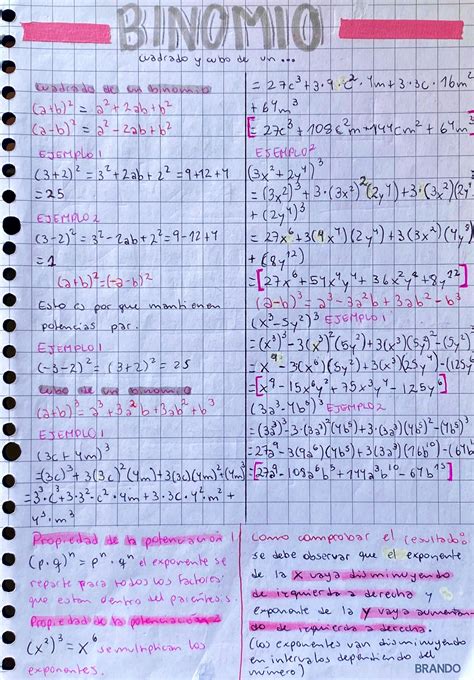 BINOMIO
cuadrado y cubo de un ...
cuadrado de un binomio
(a+b)² = a² + 2ab + b²
(a-b)² = a² - 2ab + b²
EJEMPLO 1
(3+2)² = 3² + 2ab + 2² = 9+12+4
= 25
EJEMPLO 2
(3-2)² = 3² - 2ab + 2² = 9-12+4
= 1
(a+b)² = (-a-b)²
Esto es por que mantienen
potencias par.
EJEMPLO 1
(-3-2)² = (3+2)² = 25
cubo de un binomio
(a+b)³ = a³ + 3a²b + 3ab² + b³
EJEMPLO 1
(3c + 4m)³
= (3c)³ + 3(3c)²(4m) + 3(3c)(4m)² + (4m)³
= 3³·c³ + 3·3²·c²·4m + 3·3c·4²·m² +
4³·m³
= 27c³ + 3·9·c²·4m + 3·3c·16m²
+ 64m³
[= 27c³ + 108c²m + 144cm² + 64m³]
EJEMPLO 2
(3x² + 2y⁴)³
= (3x²)³ + 3·(3x²)²(2y⁴) + 3·(3x²)(2y⁴)²
+ (2y⁴)³
= 27x⁶ + 3(9x⁴)(2y⁴) + 3(3x²)(4y⁸)
+ (8y¹²)
= [27x⁶ + 54x⁴y⁴ + 36x²y⁸ + 8y¹²]
(a-b)³ = a³ - 3a²b + 3ab² - b³
(x³ - 5y²)³ EJEMPLO 1
= (x³)³ - 3(x³)²(5y²) + 3(x³)(5y²)² - (5y²)³
= x⁹ - 3(x⁶)(5y²) + 3(x³)(25y⁴) - (125y⁶)
= [x⁹ - 15x⁶y² + 75x³y⁴ - 125y⁶]
(3a³ - 4b⁵)³ EJEMPLO 2
= (3a³)³ - 3·(3a³)²(4b⁵) + 3·(3a³)(4b⁵)² - (4b⁵)³
= 27a⁹ - 3(9a⁶)(4b⁵) + 3(3a³)(16b¹⁰) - (64b¹⁵)
= [27a⁹ - 108a⁶b⁵ + 144a³b¹⁰ - 64b¹⁵]
Propiedad de la potenciación 1
(p·q)ⁿ = pⁿ · qⁿ el exponente se
reparte para todos los factores
que estan dentro del parentesis.
Propiedad de la potenciacion
(x²)³ = x⁶ se multiplican los
exponentes.
Como comprobar el resultado:
se debe observar que el exponente
de la x vaya disminuyendo
de izquierda a derecha y
exponente de la y vaya aumentan
do de izquierda a derecha.
(los exponentes van disminuyendo
en intervalos dependiendo del
número)
BRANDO